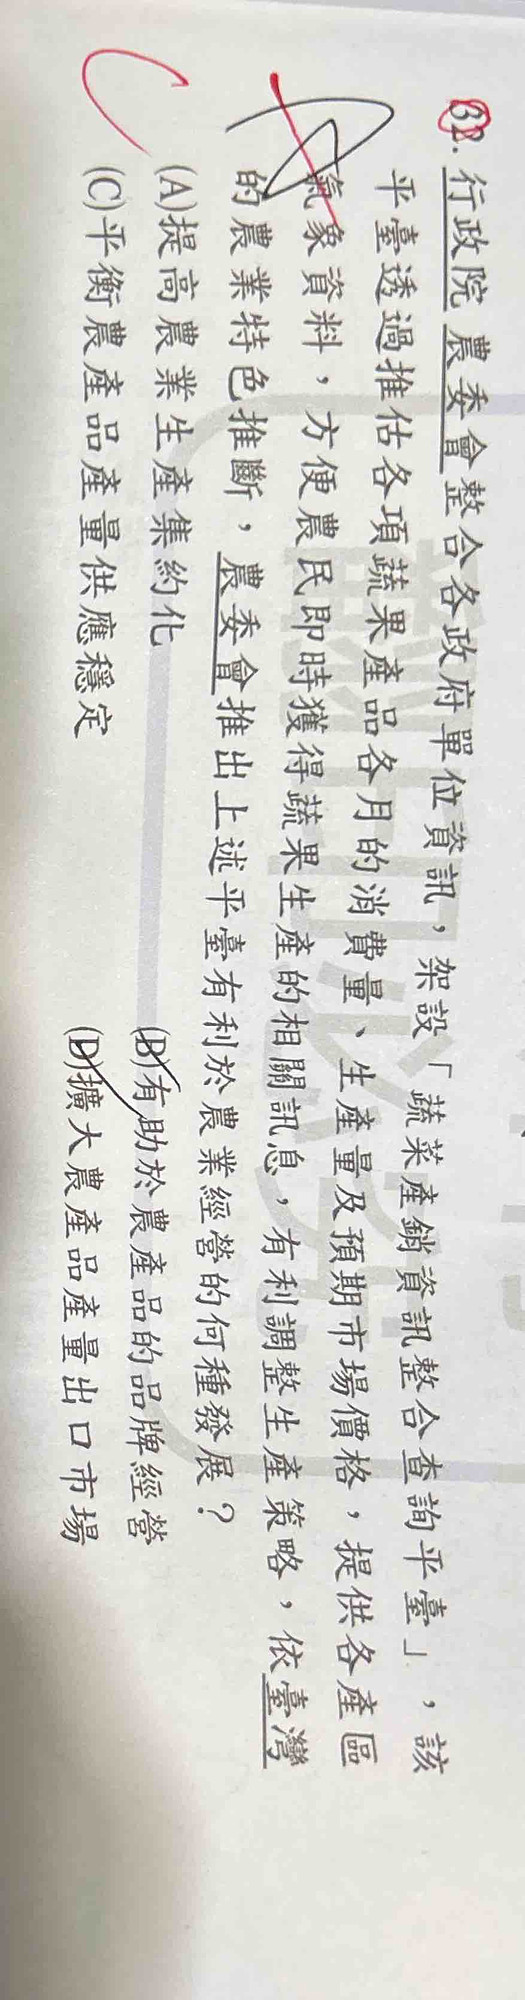 32. 行政院 農委會整合各政府單位資訊，架設「蔬菜產銷資訊整合查詢平臺」，該
平臺透過推估各項蔬果產品各月的消費量、生產量及預期市場價格，提供各產區
氣象資料，方便農民即時獲得蔬果生產的相關訊息，有利調整生產策略，依臺灣
的農業特色推斷，農委會推出上述平臺有利於農業經營的何種發展？
(A)提高農業生產集約化 (B)有助於農產品的品牌經營
(C)平衡農產品產量供應穩定 (D)擴大農產品產量出口市場
A
C